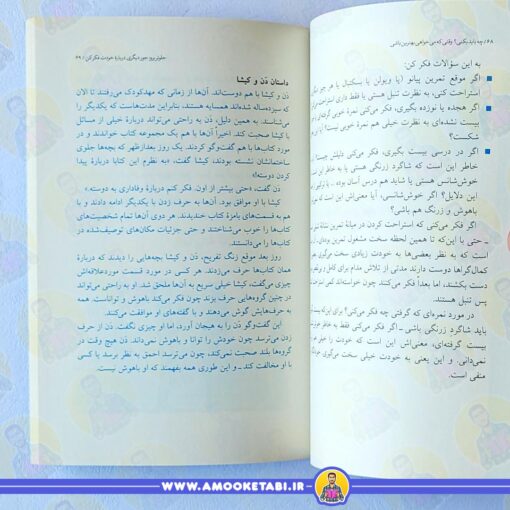 ۶۸ / چه باید بکنی؟: وقتی که می‌خواهی بهترین باشی
به این سؤالات فکر کن:
اگر موقع تمرین پیانو (یا ویولن یا بسکتبال یا هر چیز
استراحت کنی، به نظرت تنبل هستی یا فقط داری استراحت
اگر هجده یا نوزده بگیری، فکر می‌کنی نمرهٔ خوبی گرفته‌ای
بیست نشده‌ای به نظرت خیلی هم نمرهٔ خوبی نیست؟
شکست؟
اگر در درسی بیست بگیری، فکر می‌کنی دلیلش چیست؟
خاطر این است که شاگرد زرنگی هستی یا به خاطر این
خوش‌شانس هستی یا شاید هم درس آسان بوده؟ یا ترکیبی از
این دلایل؟ اگر خوش‌شانسی، آیا معنی‌اش این است که
باهوش و زرنگ هم باشی؟
اگر فکر می‌کنی که استراحت کردن در میانهٔ تمرین نشانهٔ
ـ حتی با این‌که تا همین لحظه سخت مشغول تمرین
است که به نظر بعضی‌ها به خودت زیادی سخت
کمال‌گراها دوست دارند مدتی از تلاش مدام برای
دست بکشند، اما بعداً فکر می‌کنند چون خواسته‌اند کمی
پس تنبل هستند.
در مورد نمره‌ای که گرفتی چه فکر می‌کنی؟ برای این‌که
باید شاگرد زرنگی باشی ـ اگر فکر می‌کنی فقط به خاطر
بیست گرفته‌ای، معنی‌اش این است که خودت را
نمی‌دانی. و این یعنی به خودت خیلی سخت می‌گیری
منفی است.
جلوتر برو: جور دیگری دربارهٔ خودت فکر کن / ۶۹
داستان دَن و کیشا
دَن و کیشا با هم دوست‌اند. آن‌ها از زمانی که مهدکودک می‌رفتند تا الان
که سیزده‌ساله شده‌اند، همسایه هستند، بنابراین مدت‌هاست که یکدیگر را
می‌شناسند. به همین دلیل، دَن به راحتی می‌تواند دربارهٔ خیلی از مسائل
با کیشا صحبت کند. اخیراً آن‌ها با هم یک مجموعه کتاب خواندند و در
مورد کتاب‌ها با هم گفت‌وگو کردند. یک روز بعدازظهر که بچه‌ها جلوی
ساختمانشان نشسته بودند، کیشا گفت، «به نظرم این کتاب‌ها دربارهٔ پیدا
کردن دوسته!»
دَن گفت، «حتی بیشتر از اون. فکر کنم دربارهٔ وفاداری به دوسته.»
کیشا با او موافق بود. آن‌ها به حرف زدن با یکدیگر ادامه دادند و با
هم به قسمت‌های بامزهٔ کتاب خندیدند. هر دوی آن‌ها تمام شخصیت‌های
کتاب‌ها را خوب می‌شناختند و حتی جزئیات مکان‌های توصیف‌شده در
کتاب‌ها را می‌دانستند.
روز بعد موقع زنگ تفریح، دَن و کیشا بچه‌هایی را دیدند که دربارهٔ
همان کتاب‌ها حرف می‌زدند. هر کسی در مورد قسمت موردعلاقه‌اش
چیزی می‌گفت. کیشا خیلی سریع به آن‌ها ملحق شد. او به راحتی می‌تواند
در چنین گروه‌هایی حرف بزند چون فکر می‌کند باهوش و تواناست. بعد
به حرف‌هایش گوش می‌دهند و با گفته‌های او موافقت می‌کنند.
این گفت‌وگو دَن را به هیجان آورد، اما او چیزی نگفت. دَن از حرف
زدن می‌ترسد چون خودش را توانا و باهوش نمی‌داند. دَن هیچ وقت در
گروه‌ها بلند صحبت نمی‌کند، چون می‌ترسد احمق به نظر برسد یا کسی
با او مخالفت کند ـ و این طوری همه بفهمند که او باهوش نیست.
WWW.AMOOKETABI.IR